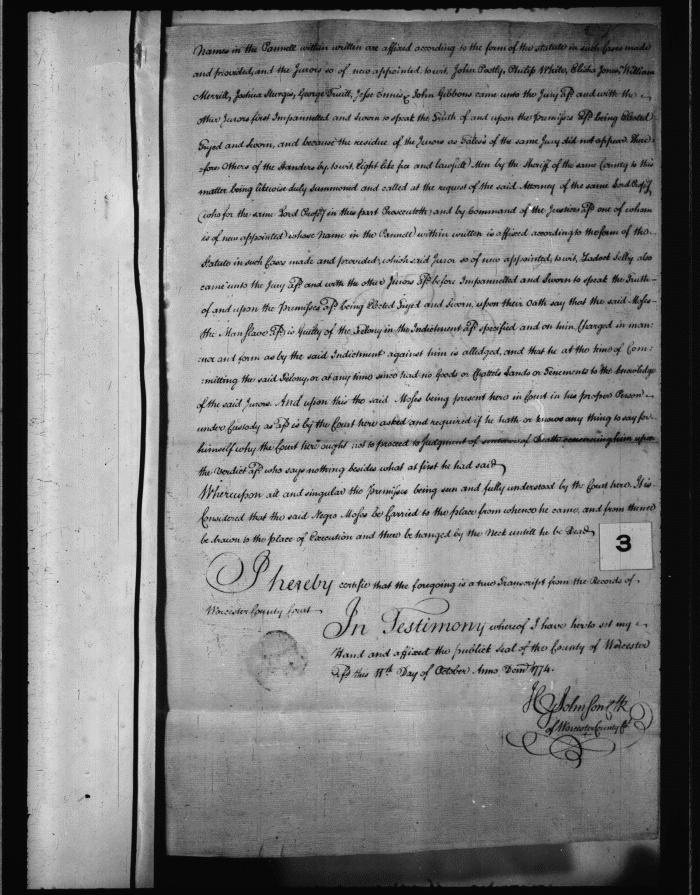 Names in the Pannell within written are affixed according to the form of the statute in such Cases made
and provided, and the Jurors so of new appointed, to wit, John Postly, Philip White, Elisha Jones, William
Merrill, Joshua Sturgis, George Truitt, Jesse Ennis & John Gibbons came unto the Jury afd and with the
other Jurors first Impannelled and Sworn to speak the Truth of and upon the Premisses afd being Elected
Tryed and Sworn, and because the residue of the Jurors as Tales's of the same Jury did not appear There
=fore Others of the Standers by, to wit, Eight like free and lawfull Men by the Sheriff of the same County to this
matter being likewise duly Summoned and called at the request of the said Attorney of the same Lord Propry
(who for the same Lord Propry in this part Prosecuteth) and by Command of the Justices afd one of whom
is of new appointed whose Name in the Pannell within written is affixed according to the form of the
Statute in such Cases made and provided, which said Juror so of new appointed, to wit, Zadock Selby also
came unto the Jury afd and with the other Jurors afd before Impannelled and Sworn to speak the Truth
of and upon the Premisses afd being Elected Tryed and Sworn, upon their Oath say that the said Moses
the Man Slave afd is Guilty of the Felony in the Indictment afd specified and on him Charged in man=
=ner and form as by the said Indictment against him is alledged, and that he at the time of Com=
=mitting the said Felony, or at any time since had no Goods or Chattels Lands or Tenements to the knowledge
of the said Jurors. And upon this the said Moses being present here in Court in his proper Person
under Custody as afd is by the Court here asked and required if he hath or knows any thing to say for
himself why the Court here ought not to proceed to Judgment of sentence of Death concerning him upon
the Verdict afd who says nothing besides what at first he had said
Whereupon all and singular the Premisses being seen and fully understood by the Court here. It is
Considered that the said Negro Moses be Carried to the place from whence he came, and from thence
be drawn to the place of Execution and there be hanged by the Neck untill he be Dead
3
I hereby certifie that the foregoing is a true Transcript from the Records of
Worcester County Court
In Testimony whereof I have hereto set my
Hand and affixed the publick Seal of the County of Worcester
afd this 11th Day of October Anno Domi 1774.
Johnson Clk
of Worcester County Ct